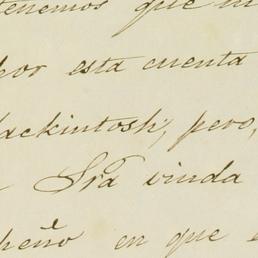 tenemos que in
por esta cuenta
ackintosh, pero,
Sra viuda
heño en que e